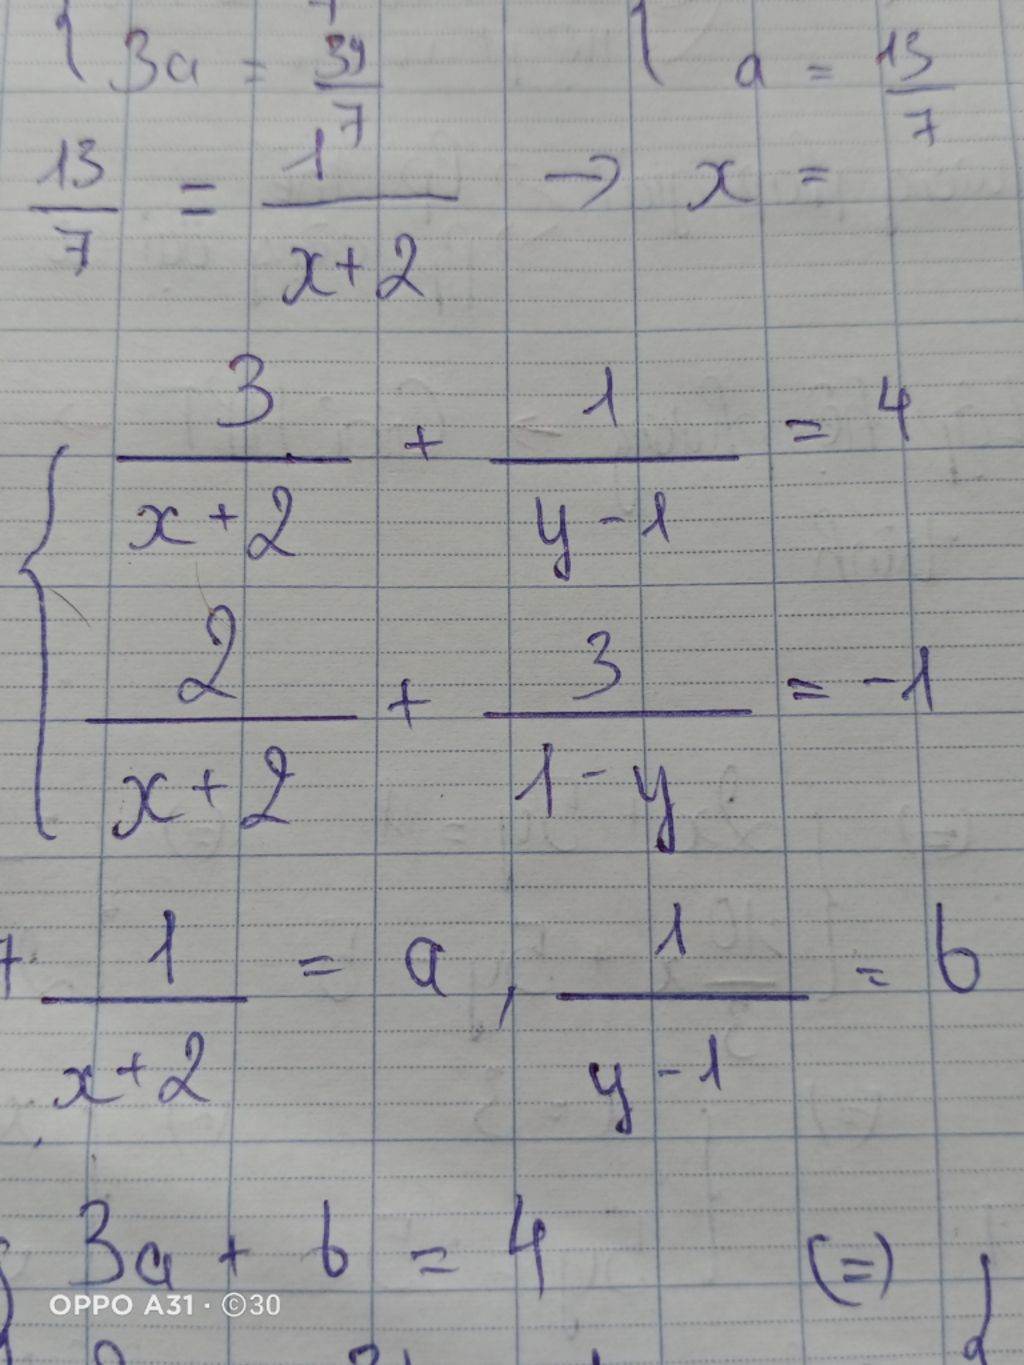 { 3a = 39/7 { a = 13/7
13/7 = 1/(x+2) → x =
{ 3/(x+2) + 1/(y-1) = 4
2/(x+2) + 3/(1-y) = -1
1/(x+2) = a, 1/(y-1) = b
3a + b = 4 (=) {
OPPO A31 · ©30